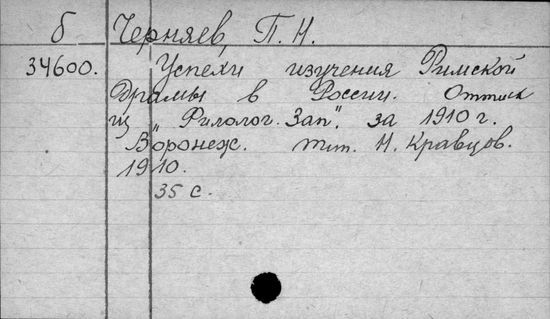 б Черняев, П. Н.
34600. Успехи изучения Римской
драмы в России. Оттиск
из „Филолог. Зап." за 1910 г.
Воронеж. тип. Н. Кравцов.
1910.
35 с.